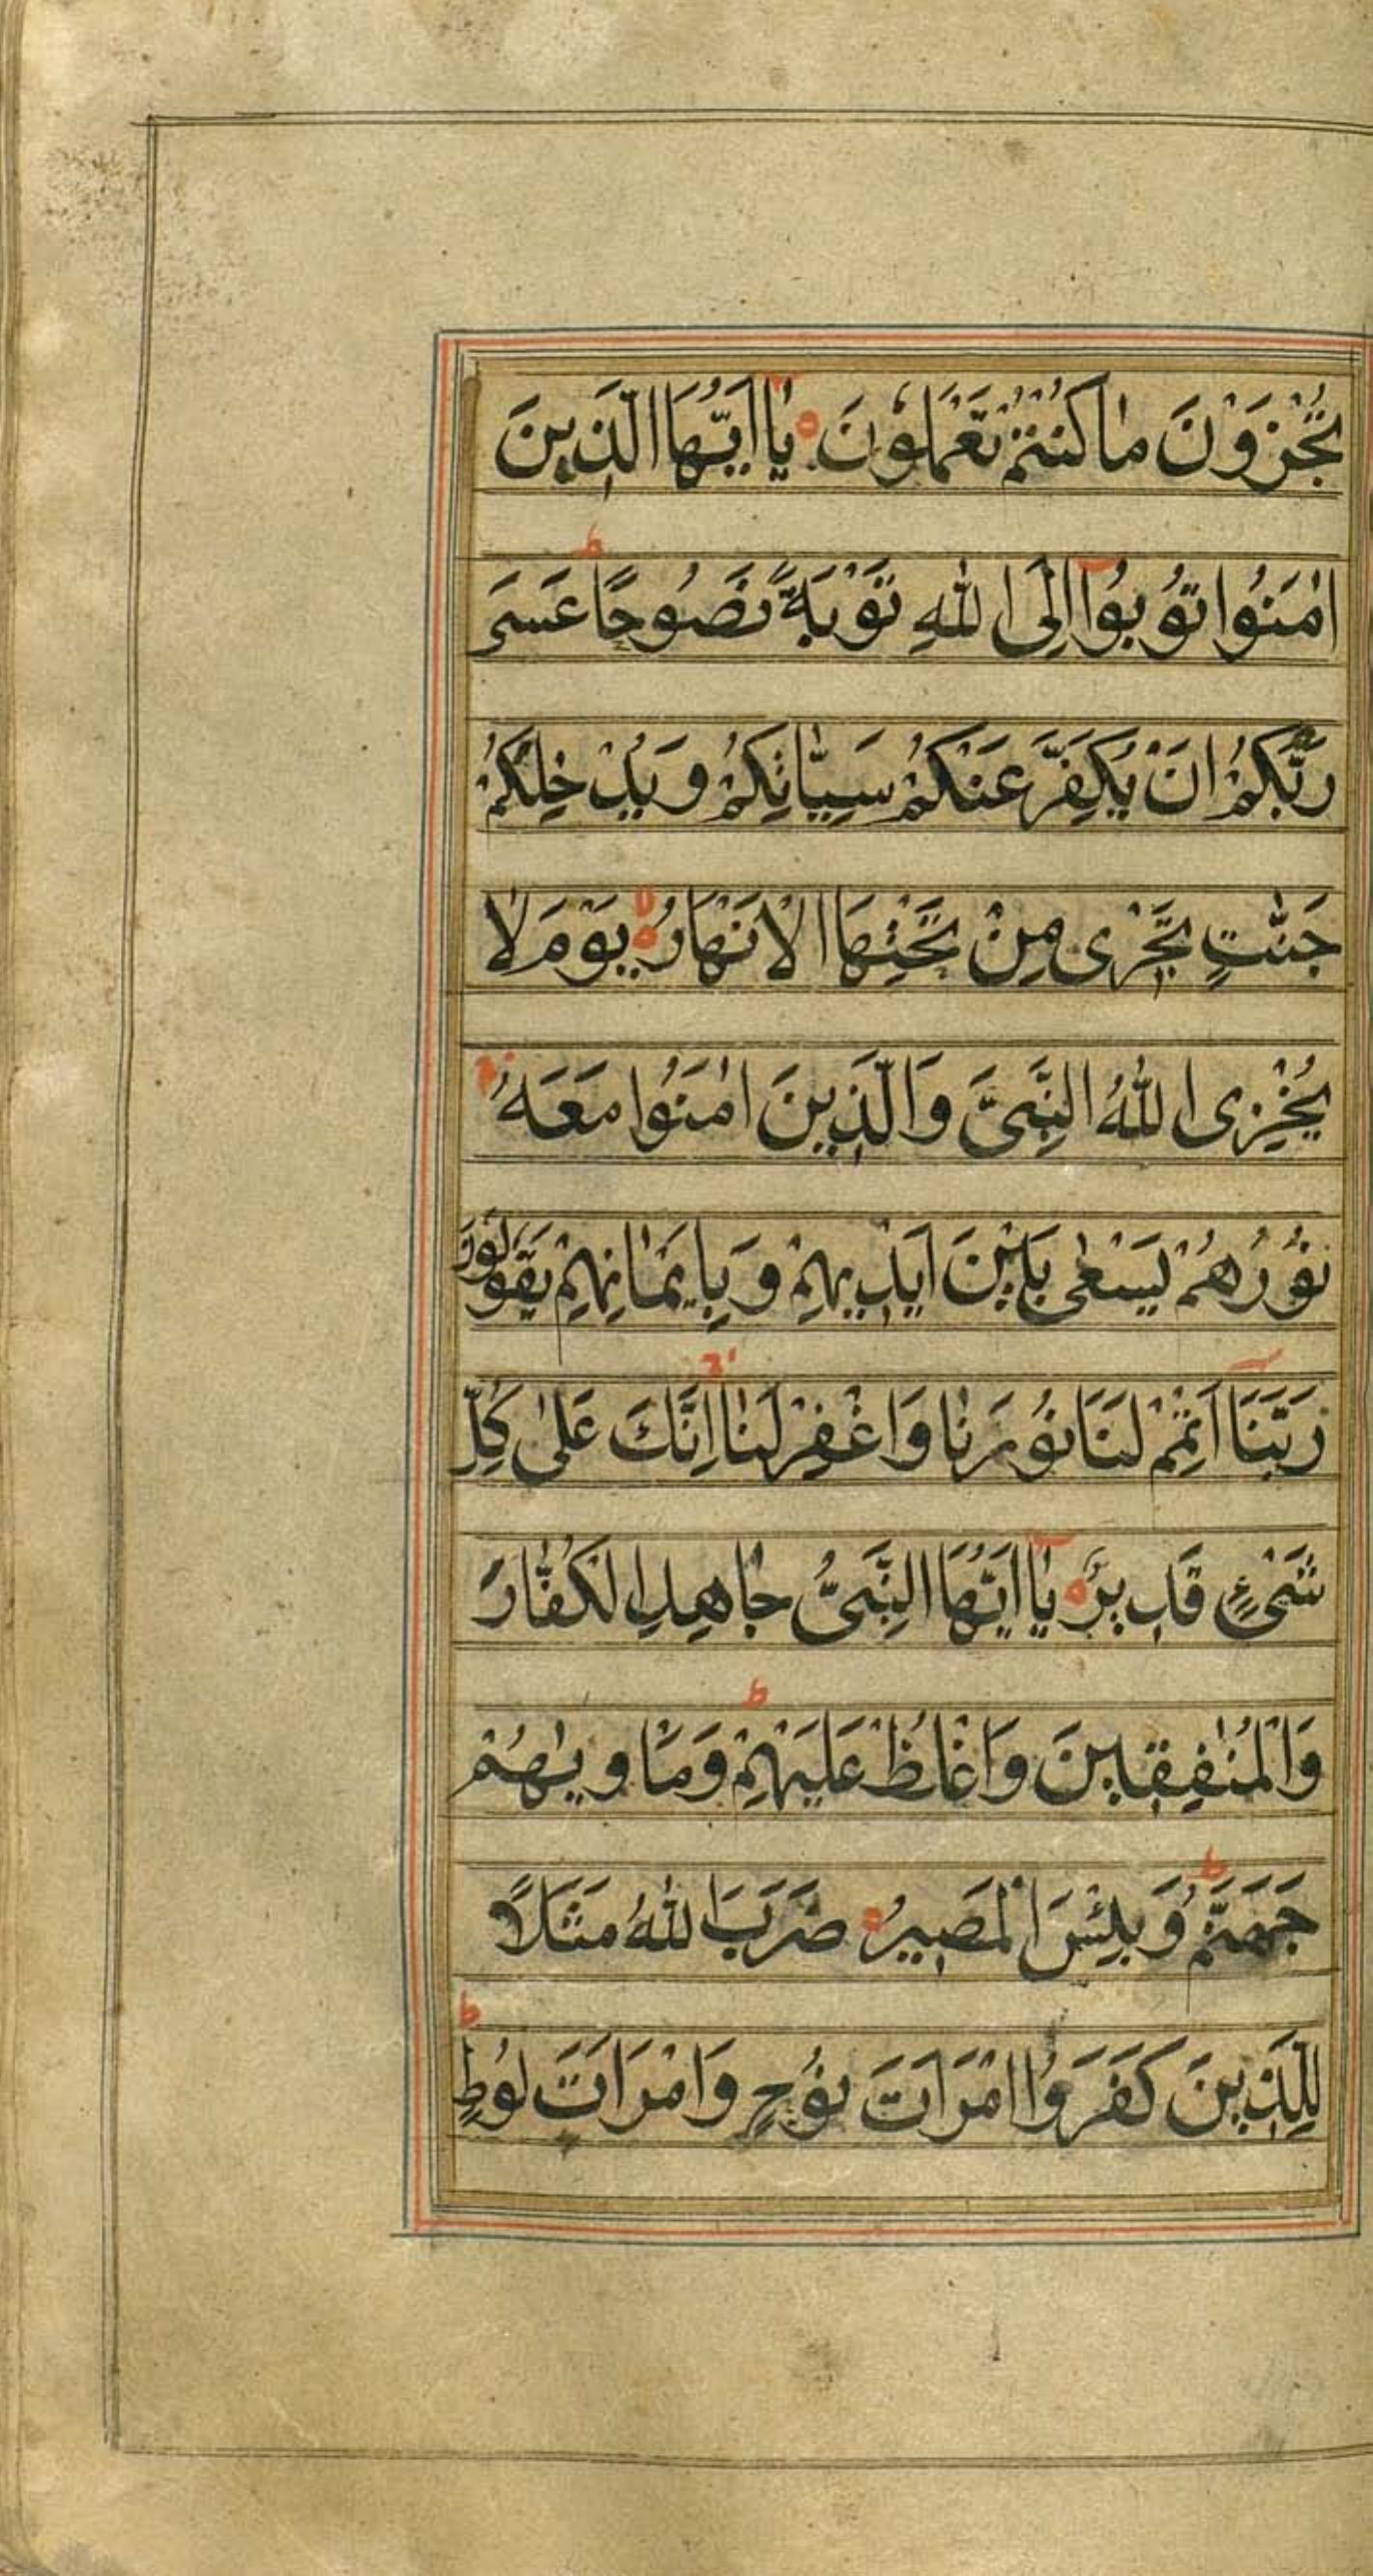 تُجْزَوْنَ مَا كُنْتُمْ تَعْمَلُونَ يَا اَيُّهَا الَّذِينَ
اٰمَنُوا تُوبُوا اِلَى اللّٰهِ تَوْبَةً نَصُوحًا ط عَسَى
رَبُّكُمْ اَنْ يُكَفِّرَ عَنْكُمْ سَيِّاٰتِكُمْ وَيُدْخِلَكُمْ
جَنّٰتٍ تَجْرِى مِنْ تَحْتِهَا الْاَنْهَارُ لا يَوْمَ لَا
يُخْزِى اللّٰهُ النَّبِىَّ وَالَّذِينَ اٰمَنُوا مَعَهُ ج
نُورُهُمْ يَسْعٰى بَيْنَ اَيْدِيهِمْ وَبِاَيْمَانِهِمْ يَقُولُونَ
رَبَّنَا اَتْمِمْ لَنَا نُورَنَا وَاغْفِرْ لَنَا ج اِنَّكَ عَلٰى كُلِّ
شَىْءٍ قَدِيرٌ يَا اَيُّهَا النَّبِىُّ جَاهِدِ الْكُفَّارَ
وَالْمُنٰفِقِينَ وَاغْلُظْ عَلَيْهِمْ ط وَمَاْوٰيهُمْ
جَهَنَّمُ ط وَبِئْسَ الْمَصِيرُ ضَرَبَ اللّٰهُ مَثَلًا
لِلَّذِينَ كَفَرُوا امْرَاَتَ نُوحٍ وَامْرَاَتَ لُوطٍ ط